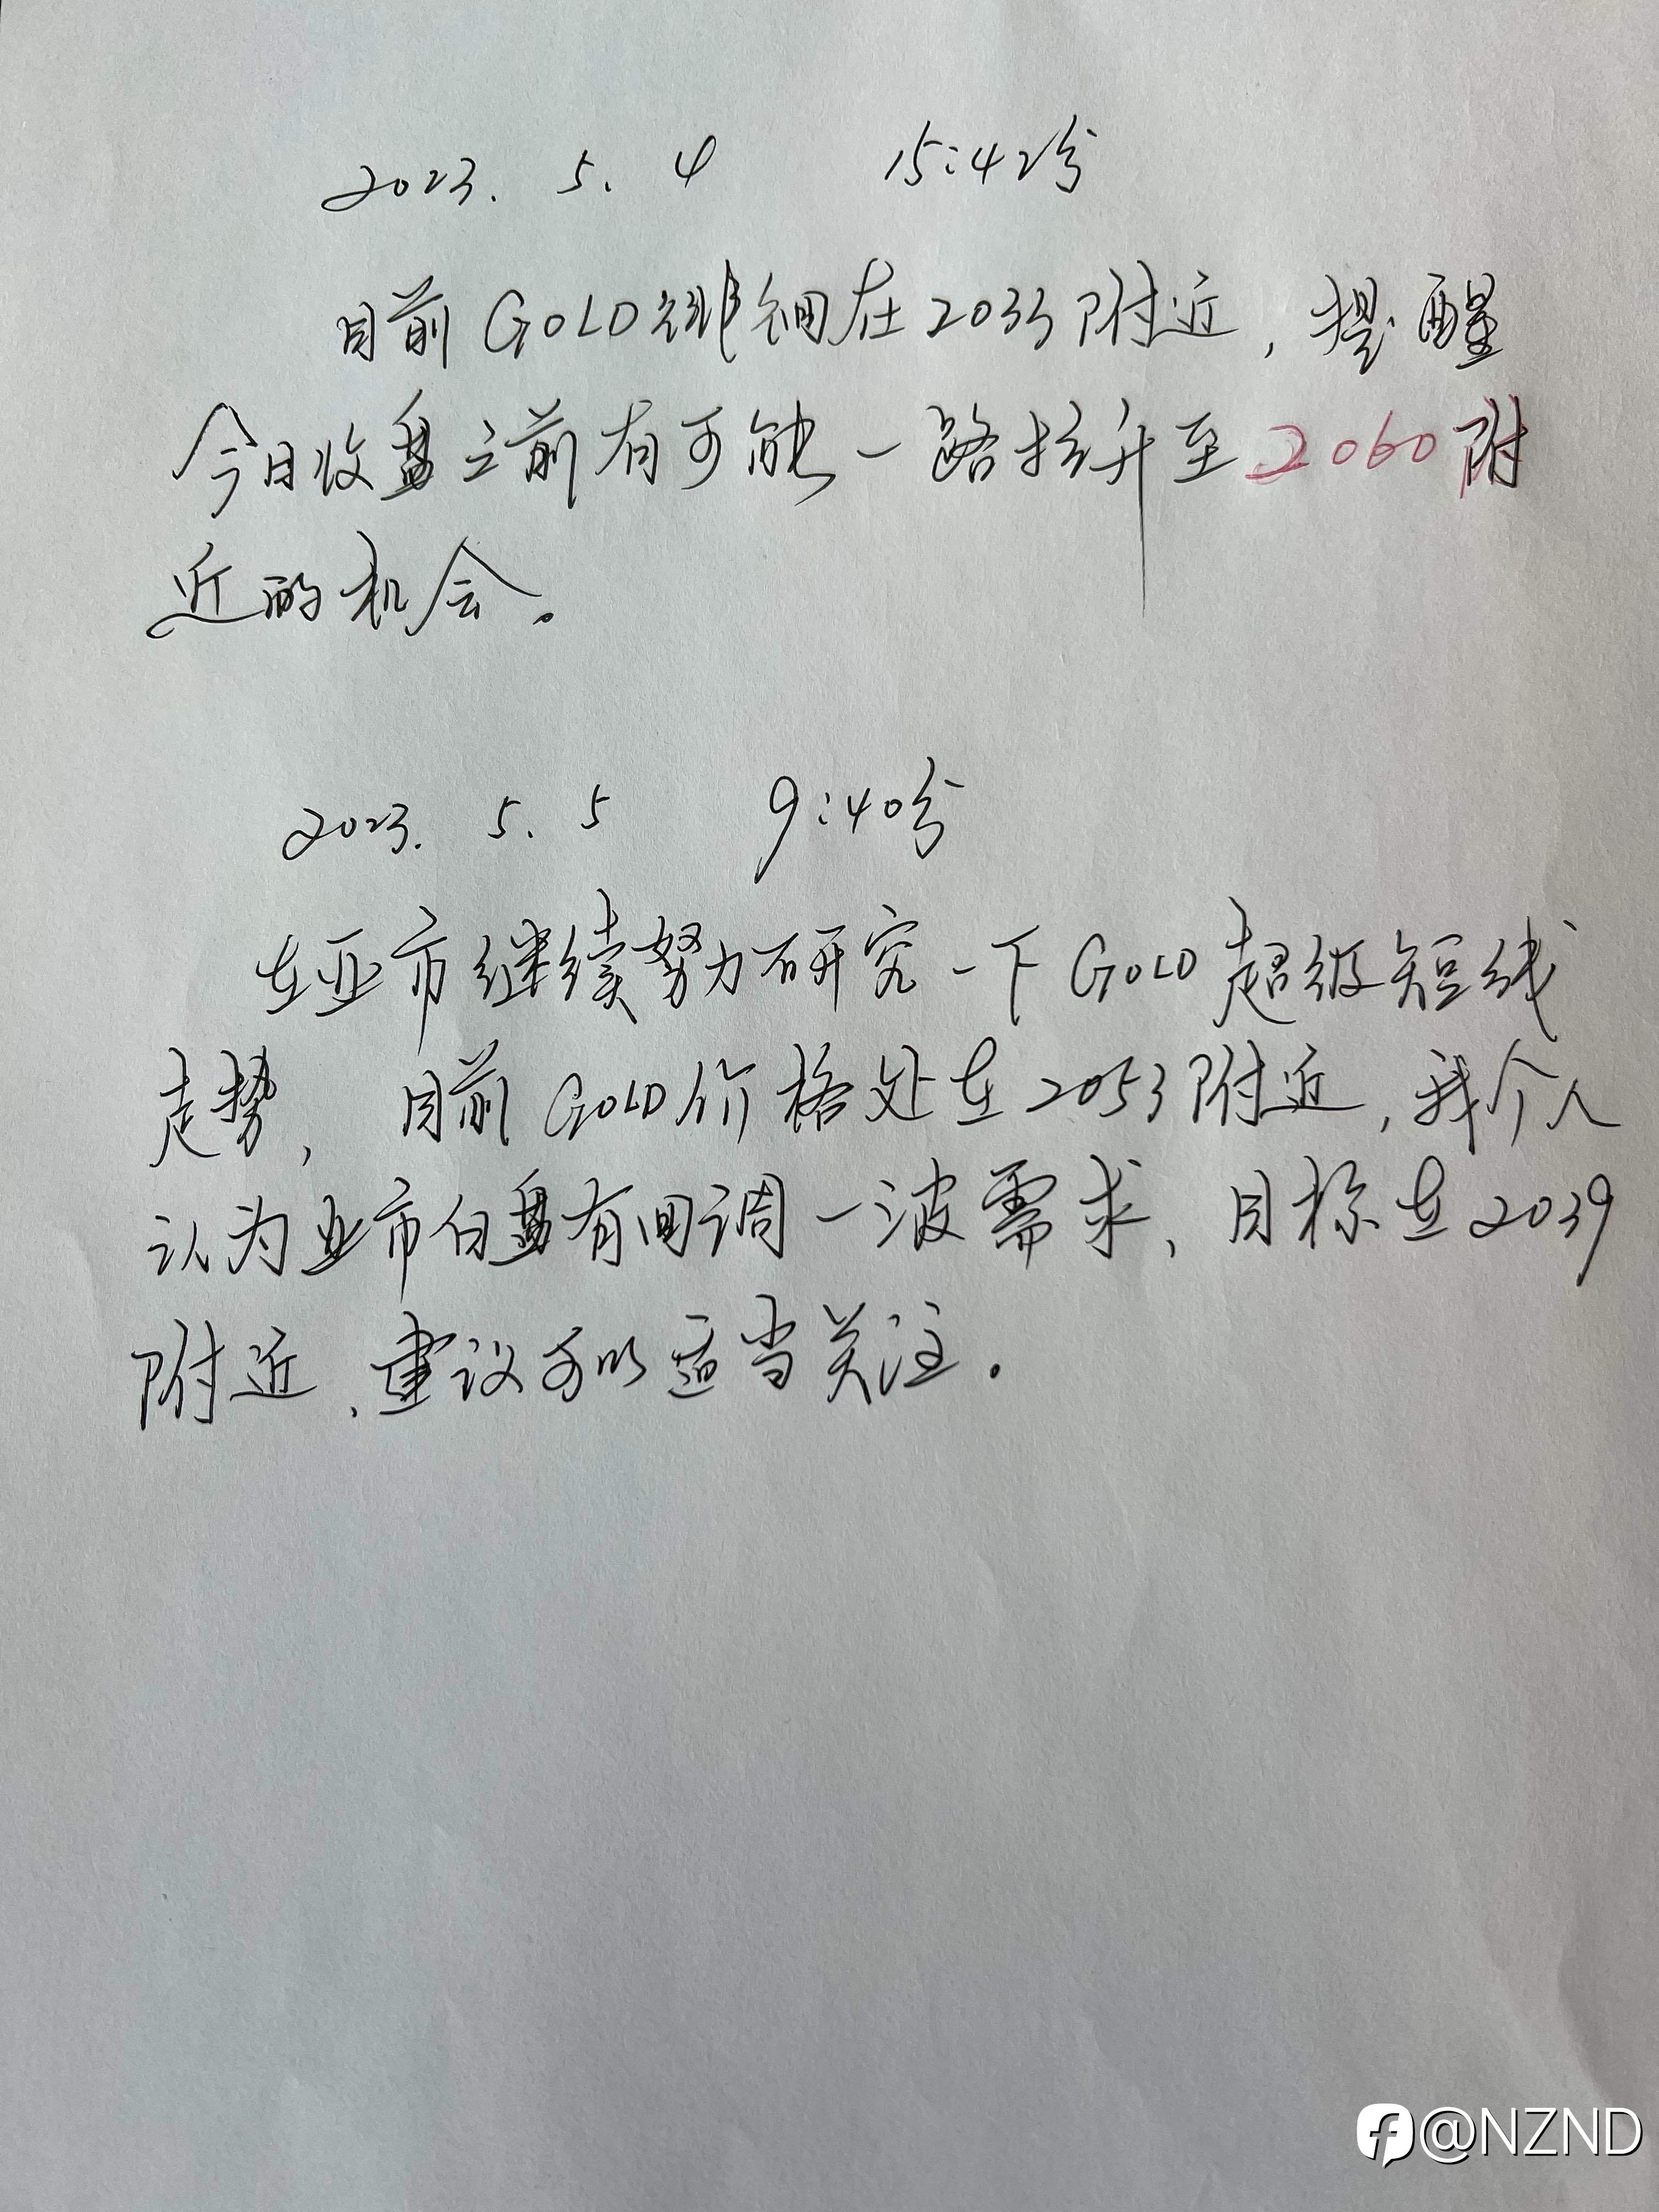 2023. 5. 4 15:42分
目前GOLD徘徊在2035附近，提醒
今日收盘之前有可能一路拉升至2060附
近的机会。
2023. 5. 5 9:40分
在亚市继续努力研究一下GOLD超级短线
走势，目前GOLD价格处在2053附近，我个人
认为亚市白盘有回调一波需求，目标在2039
附近，建议可以适当关注。
@NZND